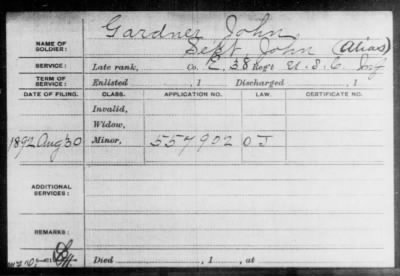 Gardner John
NAME OF SOLDIER: Sept, John (Alias)
SERVICE: Late rank, Co. E, 38 Reg't U. S. C. Inf
TERM OF SERVICE: Enlisted , 1 Discharged , 1
DATE OF FILING. CLASS. APPLICATION NO. LAW. CERTIFICATE NO.
Invalid,
Widow,
1892 Aug 30 Minor, 557902 O J
ADDITIONAL SERVICES:
REMARKS:
Died , 1 , at